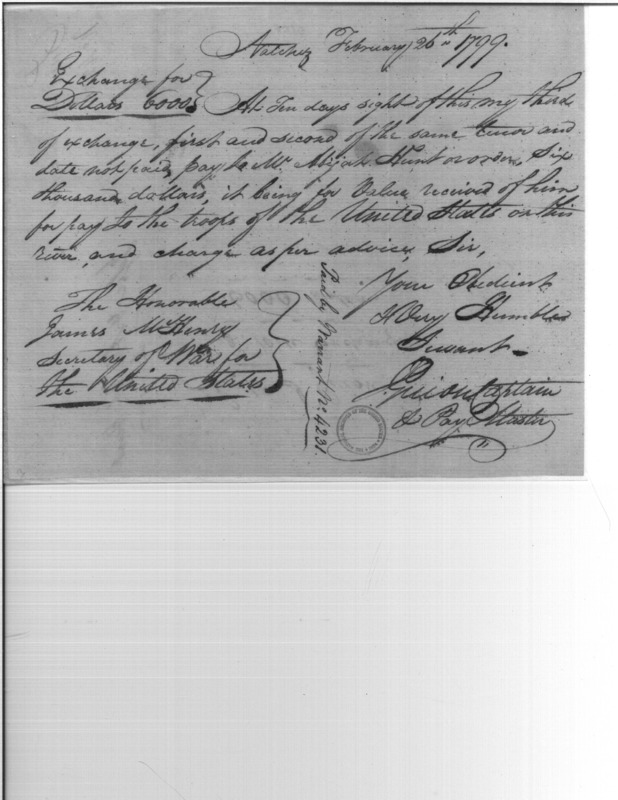 Natchez February 26th 1799.
Exchange for
Dollars 6000 } At Ten days sight of this my third
of exchange, first and second of the same tenor and
date not paid, pay to Mr. Abijah Hunt or order, Six
thousand dollars, it being for Value received of him
for pay to the troops of the United States on this
river, and charge as per advice, Sir,
Your Obedient
& Very Humble
Servant
The Honorable
James McHenry
Secretary of War for
the United States
Guion Captain
& Pay Master
Paid by Warrant No. 4231.